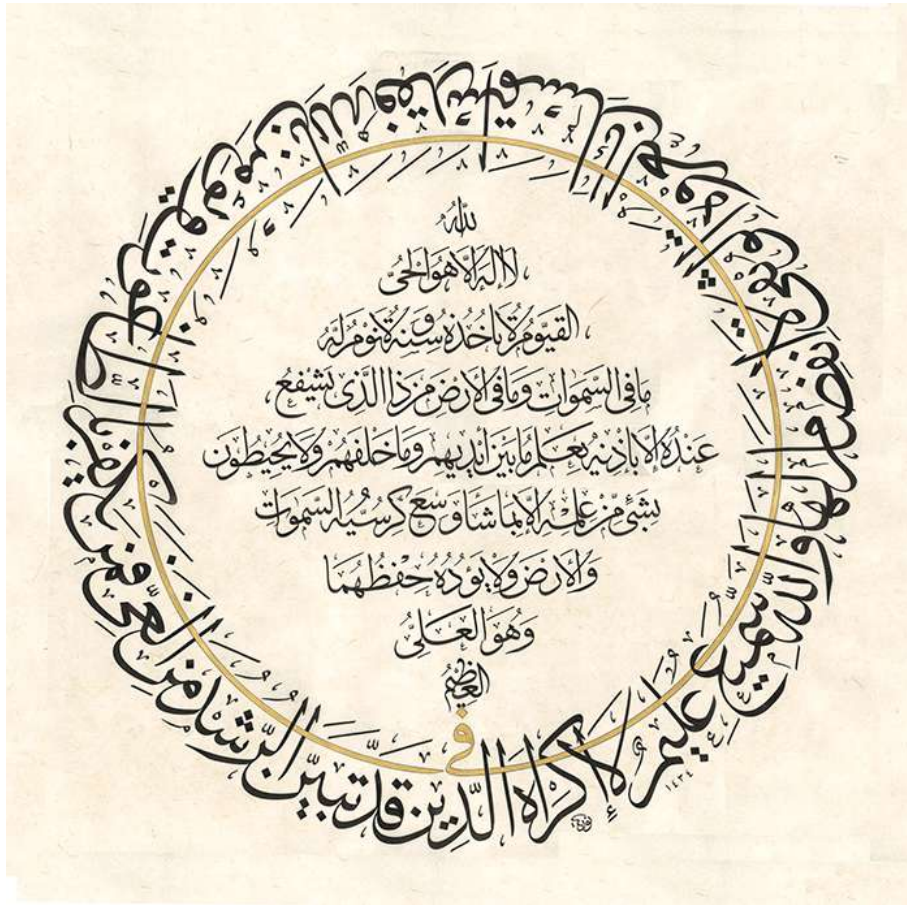 الله
لا اله إلا هو الحيّ
القيّوم لا تأخذه سنة ولا نوم له
ما في السّموات وما في الأرض من ذا الذي يشفع
عنده إلا بإذنه يعلم ما بين أيديهم وما خلفهم ولا يحيطون
بشئ مّن علمه إلّا بما شاء وسع كرسيه السّموات
والأرض ولا يؤده حفظهما
وهو العليّ
العظيم
لا إكراه في الدّين قد تبيّن الرّشد من الغيّ فمن يكفر بالطّاغوت ويؤمن بالله فقد استمسك بالعروة الوثقى لا انفصام لها والله سميع عليم
١٤٣٤